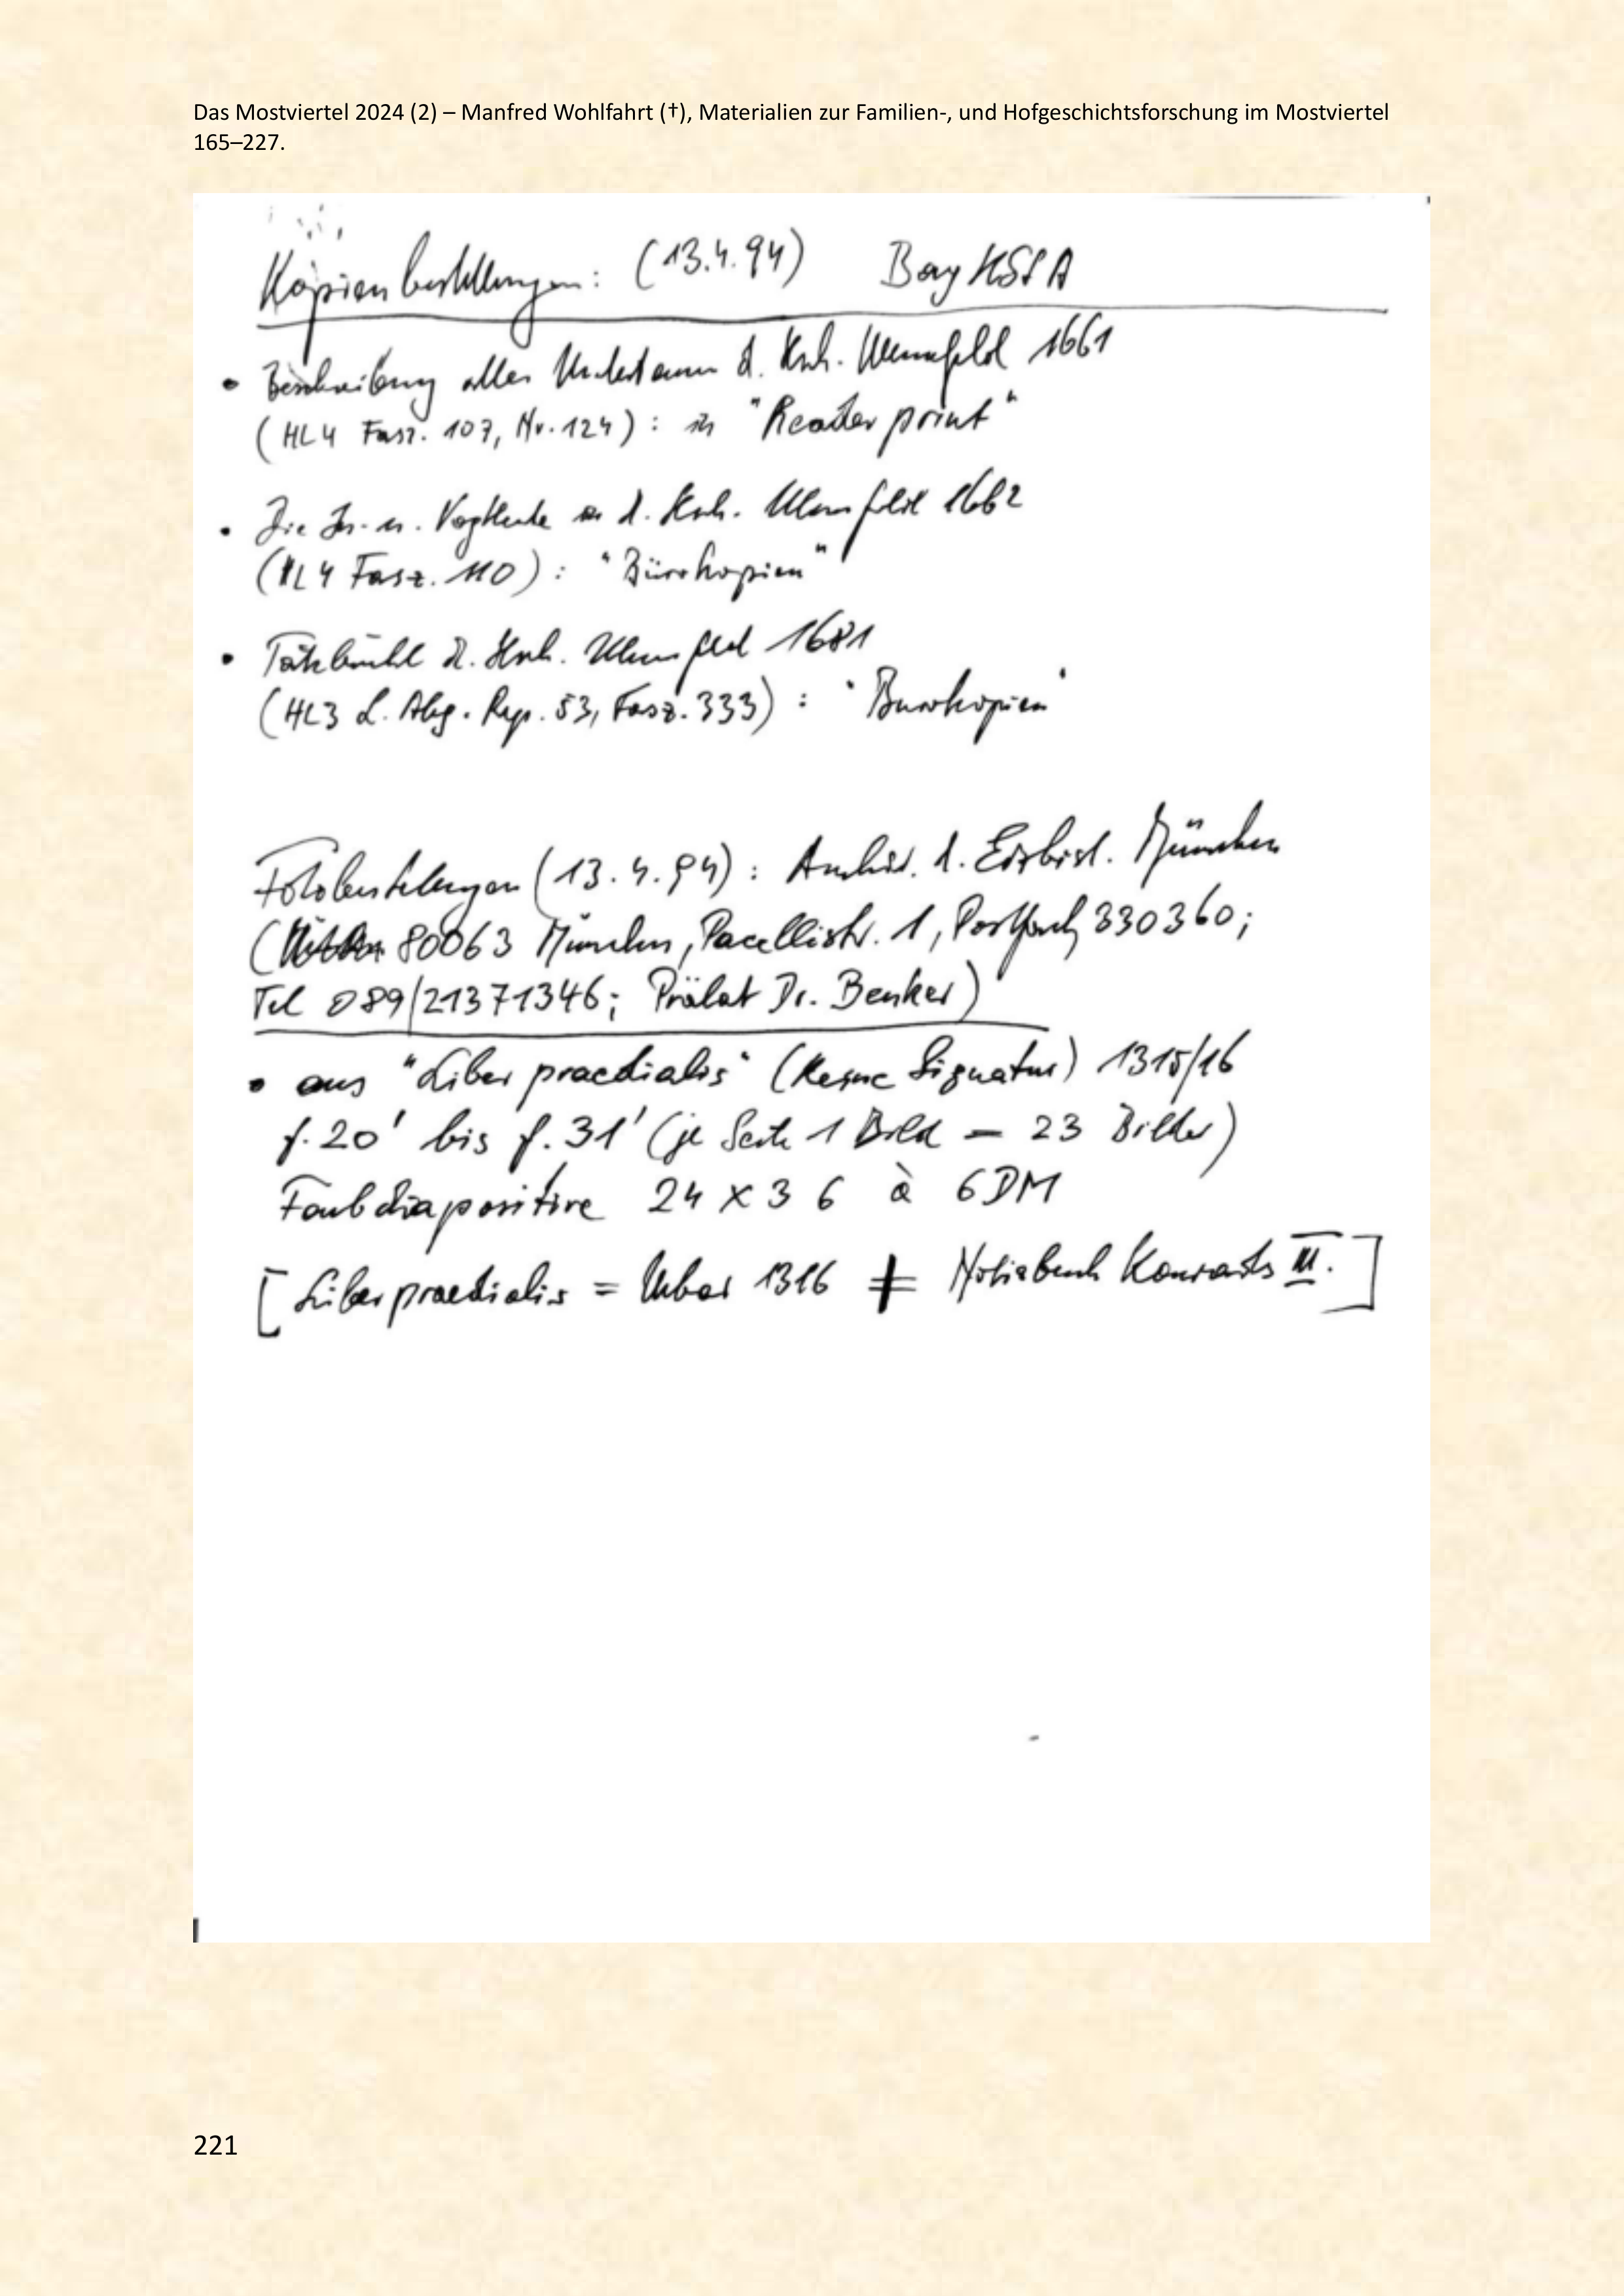 Das Mostviertel 2024 (2) – Manfred Wohlfahrt (†), Materialien zur Familien-, und Hofgeschichtsforschung im Mostviertel
165–227.
Kopienbestellungen: (13.4.94) BayHStA
• Beschreibung aller Untertanen d. 1661
(HL4 Fasz. 107, Nr. 124) : "Reader print"
• Die u. Vogtleute d. 1662
(HL4 Fasz. 110) : "Bürokopien"
• d. Ulmerfeld 1681
(HL3 Rep. 53, Fasz. 333) : "Burokopien"
Fotobestellungen (13.4.94) : Archiv d. Erzbist. München
( 80063 München, Pacellistr. 1, Postfach 330360;
Tel 089/21371346; Prälat Dr. Benker)
• aus "Liber praedialis" (Keine Signatur) 1315/16
f. 20' bis f. 31' (je Seite 1 Bild = 23 Bilder)
Farbdiapositive 24 x 36 à 6 DM
[Liber praedialis = Urbar 1316 ≠ Notizbuch Konrads III.]
221